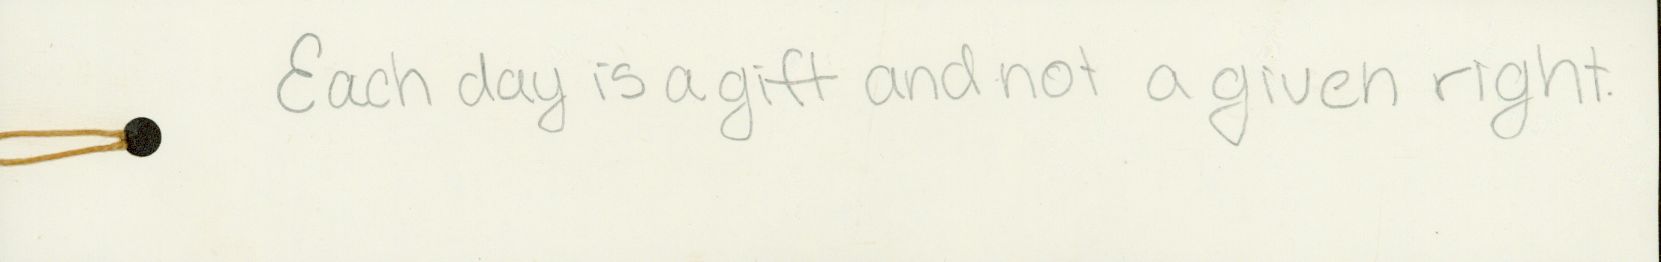 Each day is a gift and not a given right.